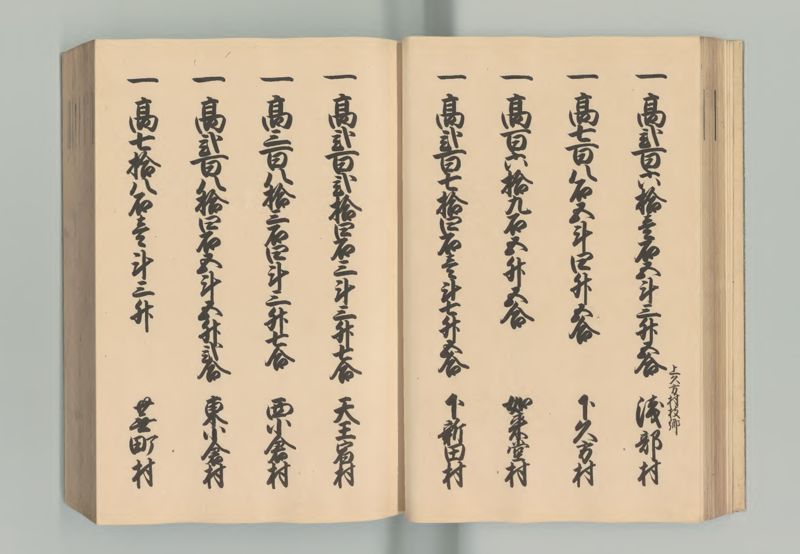 一 高弐百六拾壱石五斗三升五合
上久方村枝郷
浅部村
一 高七百八石五斗四升五合 下久方村
一 高百六拾九石五升五合 如来堂村
一 高弐百七拾四石壱斗七升五合 下新田村
一 高弐百弐拾四石三斗三升七合 天王宿村
一 高三百八拾三石四斗三升七合 西小倉村
一 高弐百八拾四石五斗五升弐合 東小倉村
一 高七拾八石壱斗三升